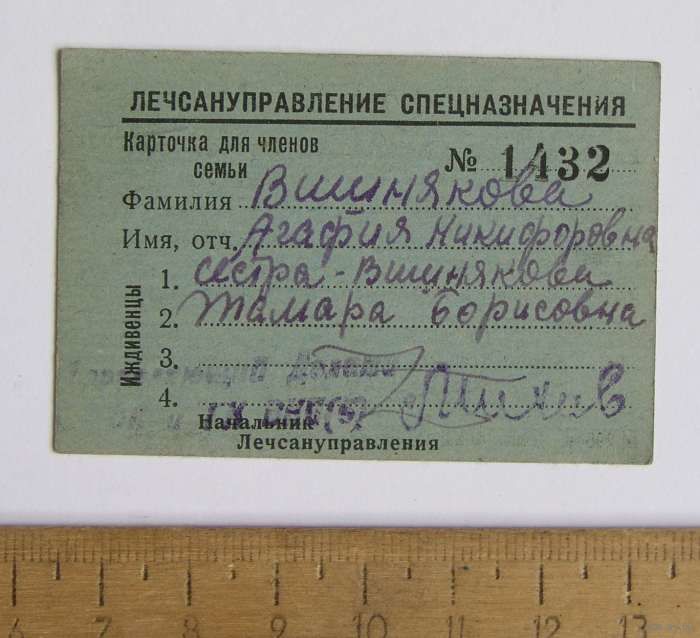 ЛЕЧСАНУПРАВЛЕНИЕ СПЕЦНАЗНАЧЕНИЯ
Карточка для членов семьи
№ 1432
Фамилия Вишнякова
Имя, отч. Агафия Никифоровна
Иждивенцы
1. сестра - Вишнякова
2. Тамара Борисовна
3.
4.
Начальник
Лечсануправления
6 7 8 9 10 11 12 13